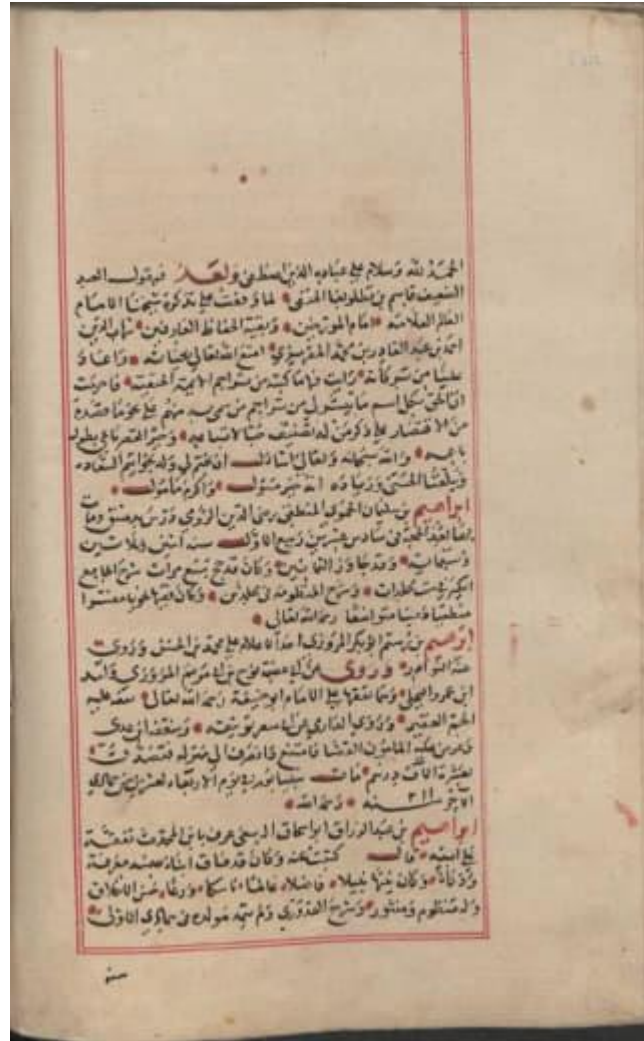 الحمد لله وسلام على عباده الذين اصطفى وبعد فيقول العبد
الضعيف قاسم بن قطلوبغا الحنفي لما وقفت على تذكرة شيخنا الامام
العالم العلامة امام المورخين وبقية الحفاظ العارفين شهاب الدين
احمد بن عبد القادر بن محمد المقريزي امتع الله تعالى بحياته واعاد
علينا من بركاته رايت فيها ما كتبه من تراجم الايمة الحنفية فاحببت
ان الحق بكل اسم ما تيسر لي من تراجم من سمي به منهم على نحو ما قصده
من الاقتصار على ذكر من له تصنيف
والله سبحانه وتعالى اسال ان يختم لي وله بخواتم السعادة
ويبلغنا الحسنى وزيادة انه خير مسئول واكرم مامول
ابراهيم بن سليمان الحموي المنطقي رضي الدين الرومي درس بدمشق ومات
بها ليلة الجمعة في سادس عشرين ربيع الاول سنة اثنين وثلاثين
وسبعماية وقد جاوز الثمانين وكان قد حج سبع مرات شرح الجامع
الكبير في ست مجلدات وشرح المنظومة في مجلدين وكان فقيها نحويا مفسرا
منطقيا دينا متواضعا رحمه الله تعالى
ابراهيم بن رستم ابو بكر المروزي احد الاعلام على محمد بن الحسن وروى
عنه النوادر وروى عن ابي عصمة نوح بن ابي مريم المروزي واسد
ابن عمرو البجلي وهما تفقها على الامام ابو حنيفة رحمه الله تعالى تفقه عليه
الجم الغفير وروى الدارمي عن ابن معين توثيقه
عرض عليه المامون القضا فامتنع وانصرف الى منزله فتصدق
بعشرة الاف درهم مات بنيسابور يوم الاربعاء لعشر بقين من جمادي
الآخر سنة ٢١١ رحمه الله
ابراهيم بن عبد الرزاق ابو اسحاق عرف بابن المحدث تفقه
على ابيه قال كتبت عنه وكان قد فاق ابناء عصره معرفة
وذكاء وكان فقيها نبيلا فاضلا عالما ناسكا ورعا حسن الاخلاق
وله منظوم ومنثور وشرح القدوري ولم يتمه مولده في جمادي الاولى